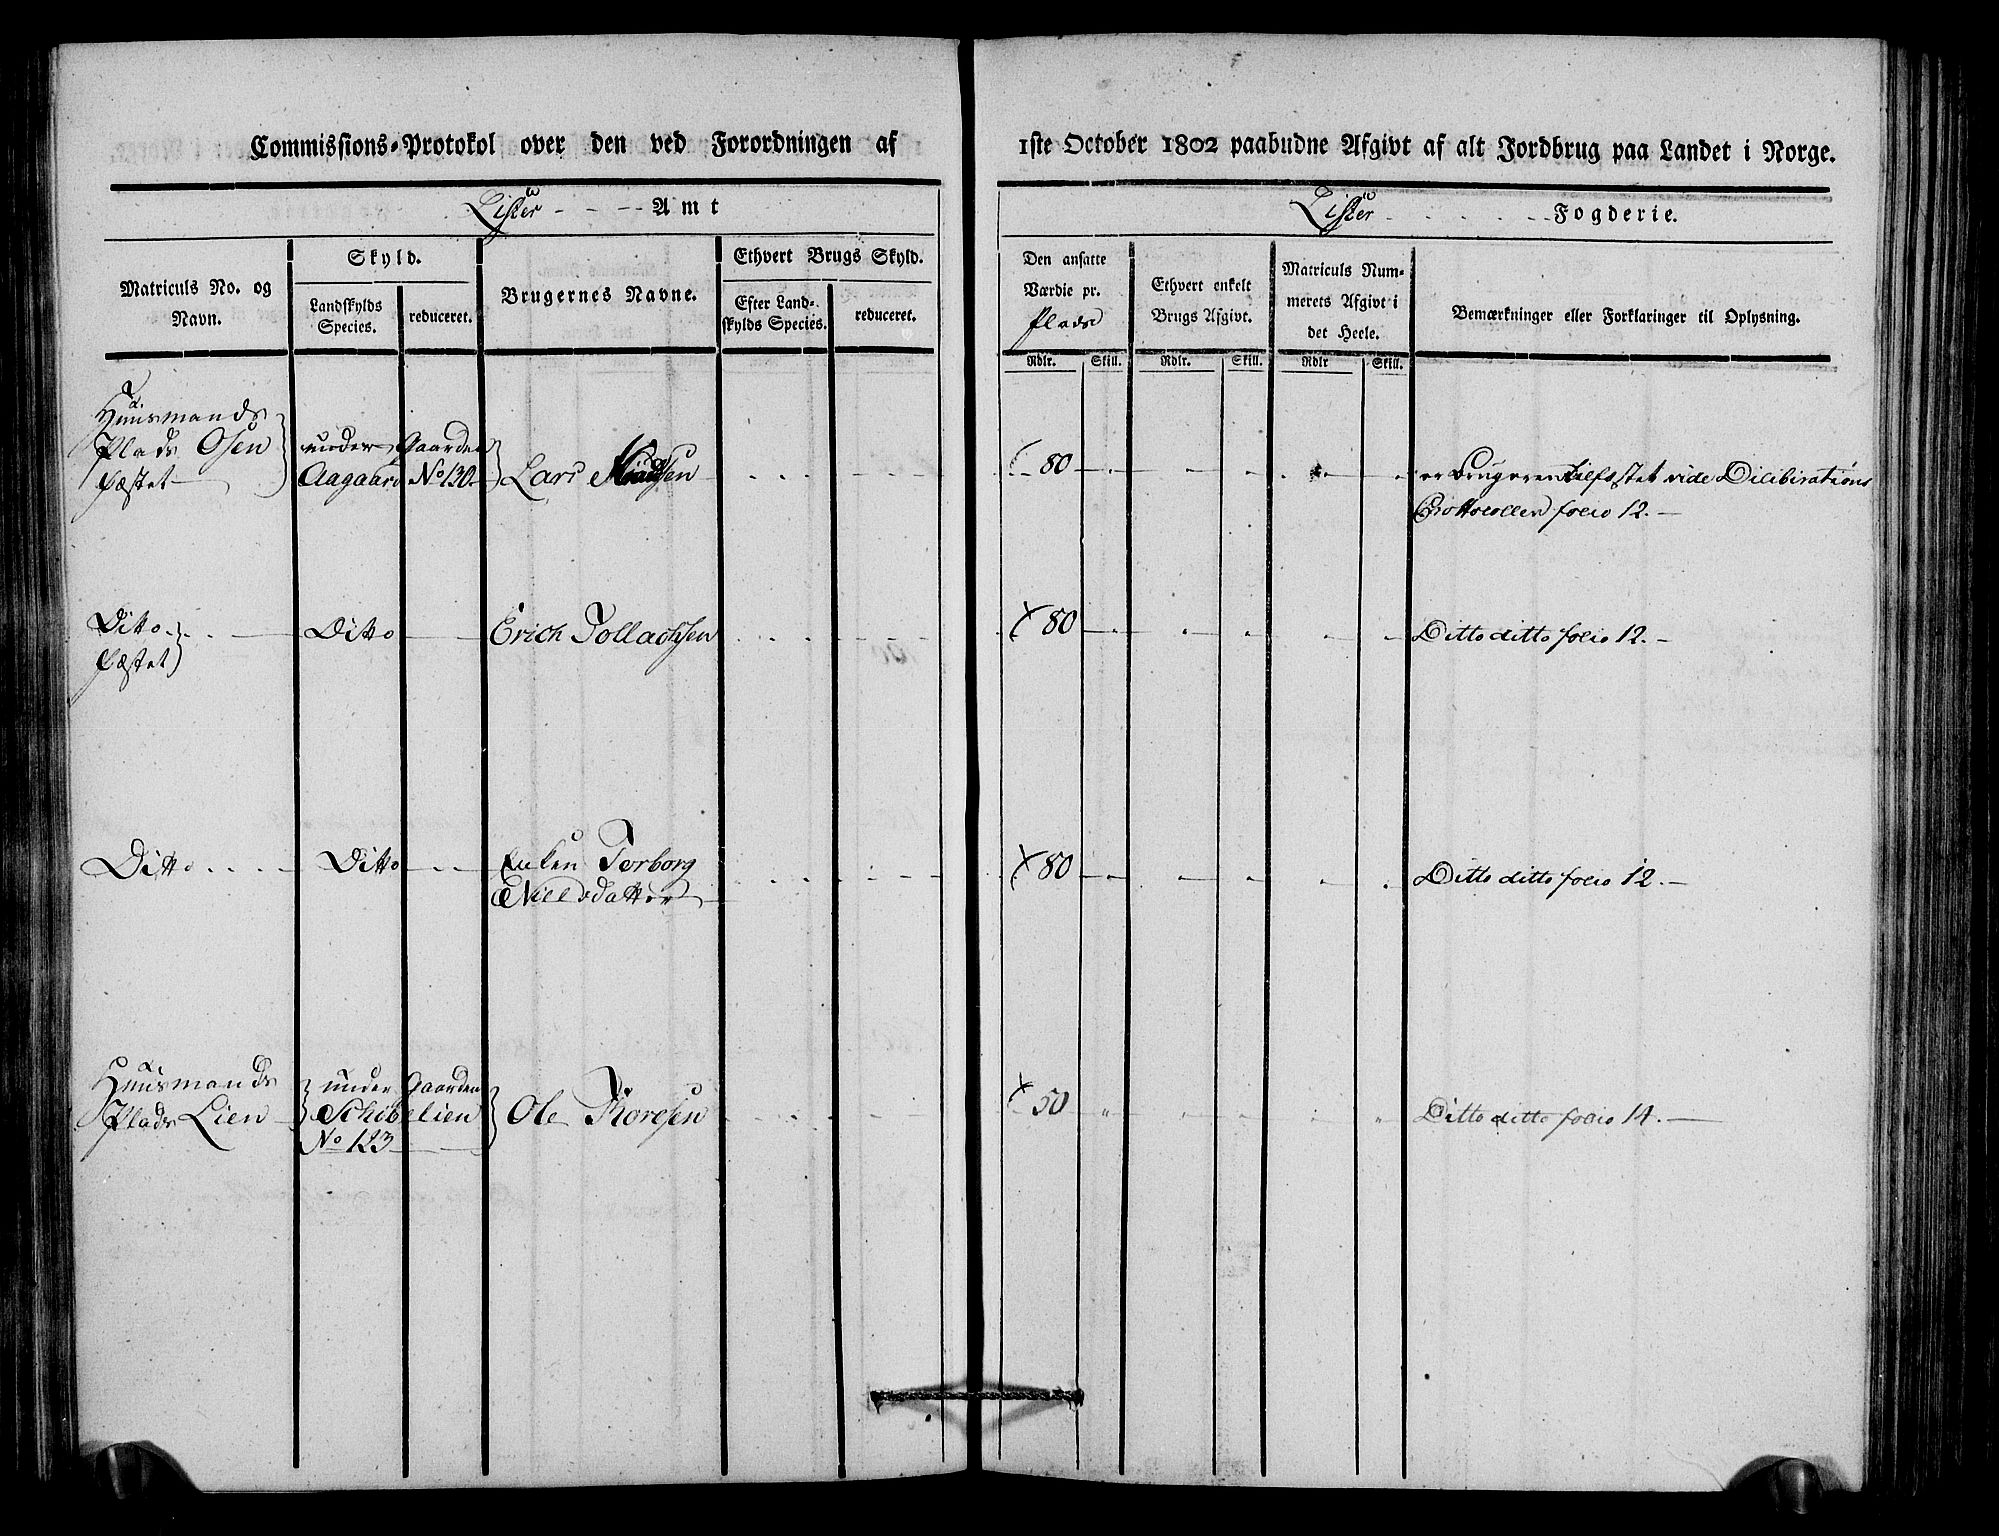 Commissions-Protokol over den ved Forordningen af
1ste October 1802 paabudne Afgivt af alt Jordbrug paa Landet i Norge.
Lister Amt
Lister Fogderie.
Matriculs No. og
Navn.
Skyld.
Landskylds
Species.
reduceret.
Brugernes Navne.
Ethvert Brugs Skyld.
Efter Land-
skylds Species.
reduceret.
Den ansatte
Værdie pr.
Plads
Ethvert enkelt
Brugs Afgivt.
Matriculs Num-
merets Afgivt i
det Heele.
Bemærkninger eller Forklaringer til Oplysning.
Rdlr. Skill. Rdlr. Skill. Rdlr Skill.
Huusmands
Plads Osen
fæstet
under Gaarden
Aagaard No 130.
Lars
80
er Brugeren vide Dilibirations
Prottocollen folio 12.
Ditto
fæstet
Ditto
Erich Tollachsen
80
Ditto ditto folio 12.
Ditto
Ditto
Enken Torborg
Nielsdatter
80
Ditto ditto folio 12.
Huusmands
Plads Lien
under Gaarden
Schibelien
No 123
Ole Thoresen
50
Ditto ditto folio 14.